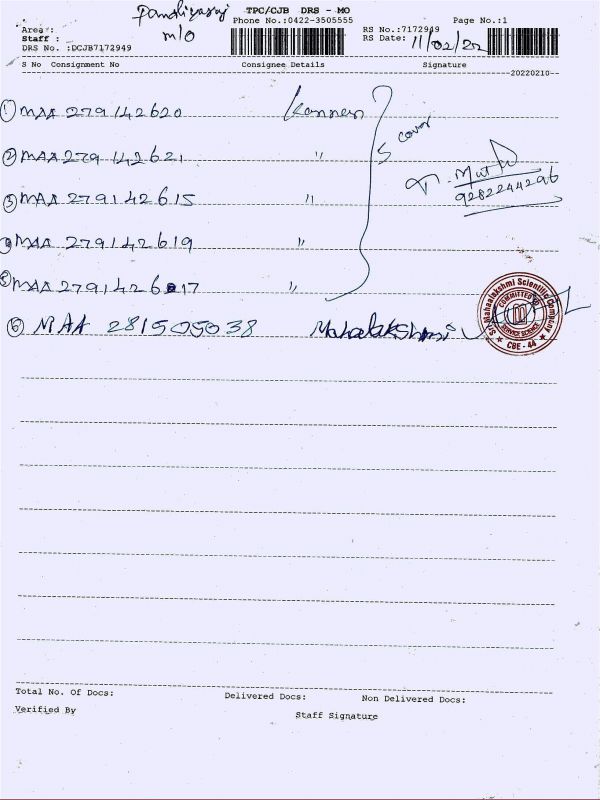 TPC/CJB DRS - MO
m/o
Phone No.:0422-3505555
Page No.:1
Area :
Staff :
DRS No. :DCJB7172949
RS No.:7172949
RS Date: 11/02/22
S No Consignment No Consignee Details Signature
20220210
① MAA 279142620 Kannan
② MAA 279142621 "
③ MAA 279142615 "
④ MAA 279142619 "
⑤ MAA 279142617 "
5 cover
9282244296
⑥ MAA 281505038 Mahalakshmi
Sri Mahaalakshmi Scientific Company
COMMITTED TO
SERVICE SCIENCE
CBE - 44
Total No. Of Docs: Delivered Docs: Non Delivered Docs:
Verified By Staff Signature